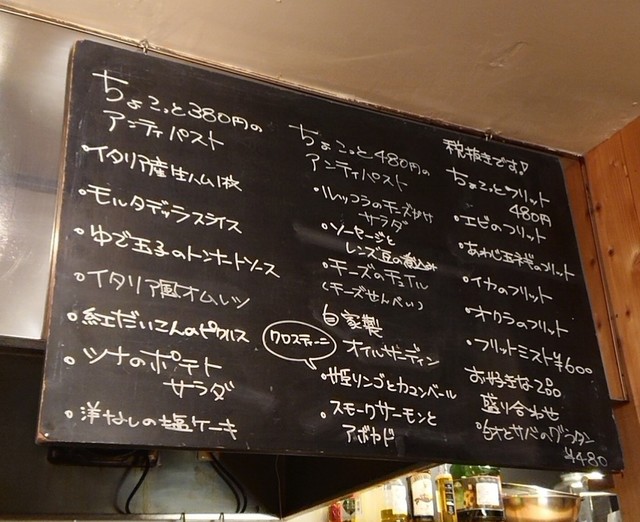 ちょこっと380円の
アンティパスト
・イタリア産生ハム1枚
・モルタデッラスライス
・ゆで玉子のトンナートソース
・イタリア風オムレツ
・紅だいこんのピクルス
・ツナのポテト
サラダ
・洋なしの塩ケーキ
ちょこっと480円の
アンティパスト
・ルッコラのチーズがけ
サラダ
・ソーセージと
レンズ豆の煮込み
・チーズのチュイル
(チーズせんべい)
自家製
オイルサーディン
クロスティーニ
・姫リンゴとカマンベール
・スモークサーモンと
アボカド
税抜きです!
ちょこっとフリット
480円
・エビのフリット
・あわじ玉ネギのフリット
・イカのフリット
・オクラのフリット
・フリットミスト¥600
お好きな2品
盛り合わせ
・とサバのグラタン
¥480